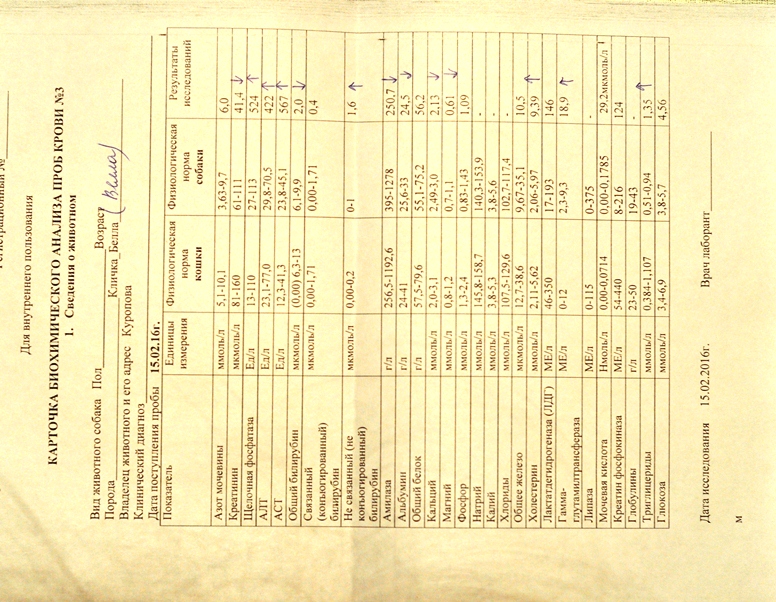 Регистрационный №
Для внутреннего пользования
КАРТОЧКА БИОХИМИЧЕСКОГО АНАЛИЗА ПРОБ КРОВИ №3
1. Сведения о животном
Вид животного собака Пол Возраст
Порода Кличка_Белла (Белла)
Владелец животного и его адрес Куропова
Клинический диагноз
Дата поступления пробы 15.02.16г.
Показатель Единицы измерения Физиологическая норма кошки Физиологическая норма собаки Результаты исследований
Азот мочевины ммоль/л 5,1-10,1 3,63-9,7 6,0
Креатинин мкмоль/л 81-160 61-111 41,4 ↓
Щелочная фосфатаза Ед/л 13-110 27-113 524 ↑
АЛТ Ед/л 23,1-77,0 29,8-70,5 422 ↑
АСТ Ед/л 12,3-41,3 23,8-45,1 567 ↑
Общий билирубин мкмоль/л (0,00) 6,3-13 6,1-9,9 2,0 ↓
Связанный (конъюгированный) билирубин мкмоль/л 0,00-1,71 0,00-1,71 0,4
Не связанный (не конъюгированный) билирубин мкмоль/л 0,00-0,2 0-1 1,6 ↑
Амилаза г/л 256,5-1192,6 395-1278 250,7 ↓
Альбумин г/л 24-41 25,6-33 24,5 ↓
Общий белок г/л 57,5-79,6 55,1-75,2 56,2
Кальций ммоль/л 2,0-3,1 2,49-3,0 2,13 ↓
Магний ммоль/л 0,8-1,2 0,7-1,1 0,61 ↓
Фосфор ммоль/л 1,3-2,4 0,83-1,43 1,09
Натрий ммоль/л 145,8-158,7 140,3-153,9 -
Калий ммоль/л 3,8-5,3 3,8-5,6 -
Хлориды ммоль/л 107,5-129,6 102,7-117,4 -
Общее железо ммоль/л 12,7-38,6 9,67-35,1 10,5
Холестерин ммоль/л 2,11-5,62 2,06-5,97 9,39 ↑
Лактатдегидрогеназа (ЛДГ) МЕ/л 46-350 17-193 146
Гамма-глутамилтрансфераза МЕ/л 0-12 2,3-9,3 18,9 ↑
Липаза МЕ/л 0-115 0-375 -
Мочевая кислота Нмоль/л 0,00-0,0714 0,00-0,1785 29,2мкмоль/л
Креатин фосфокиназа МЕ/л 54-440 8-216 124
Глобулины г/л 23-50 19-43 -
Триглицериды ммоль/л 0,384-1,107 0,51-0,94 1,35 ↑
Глюкоза ммоль/л 3,4-6,9 3,8-5,7 4,56
Дата исследования 15.02.2016г. Врач лаборант
м